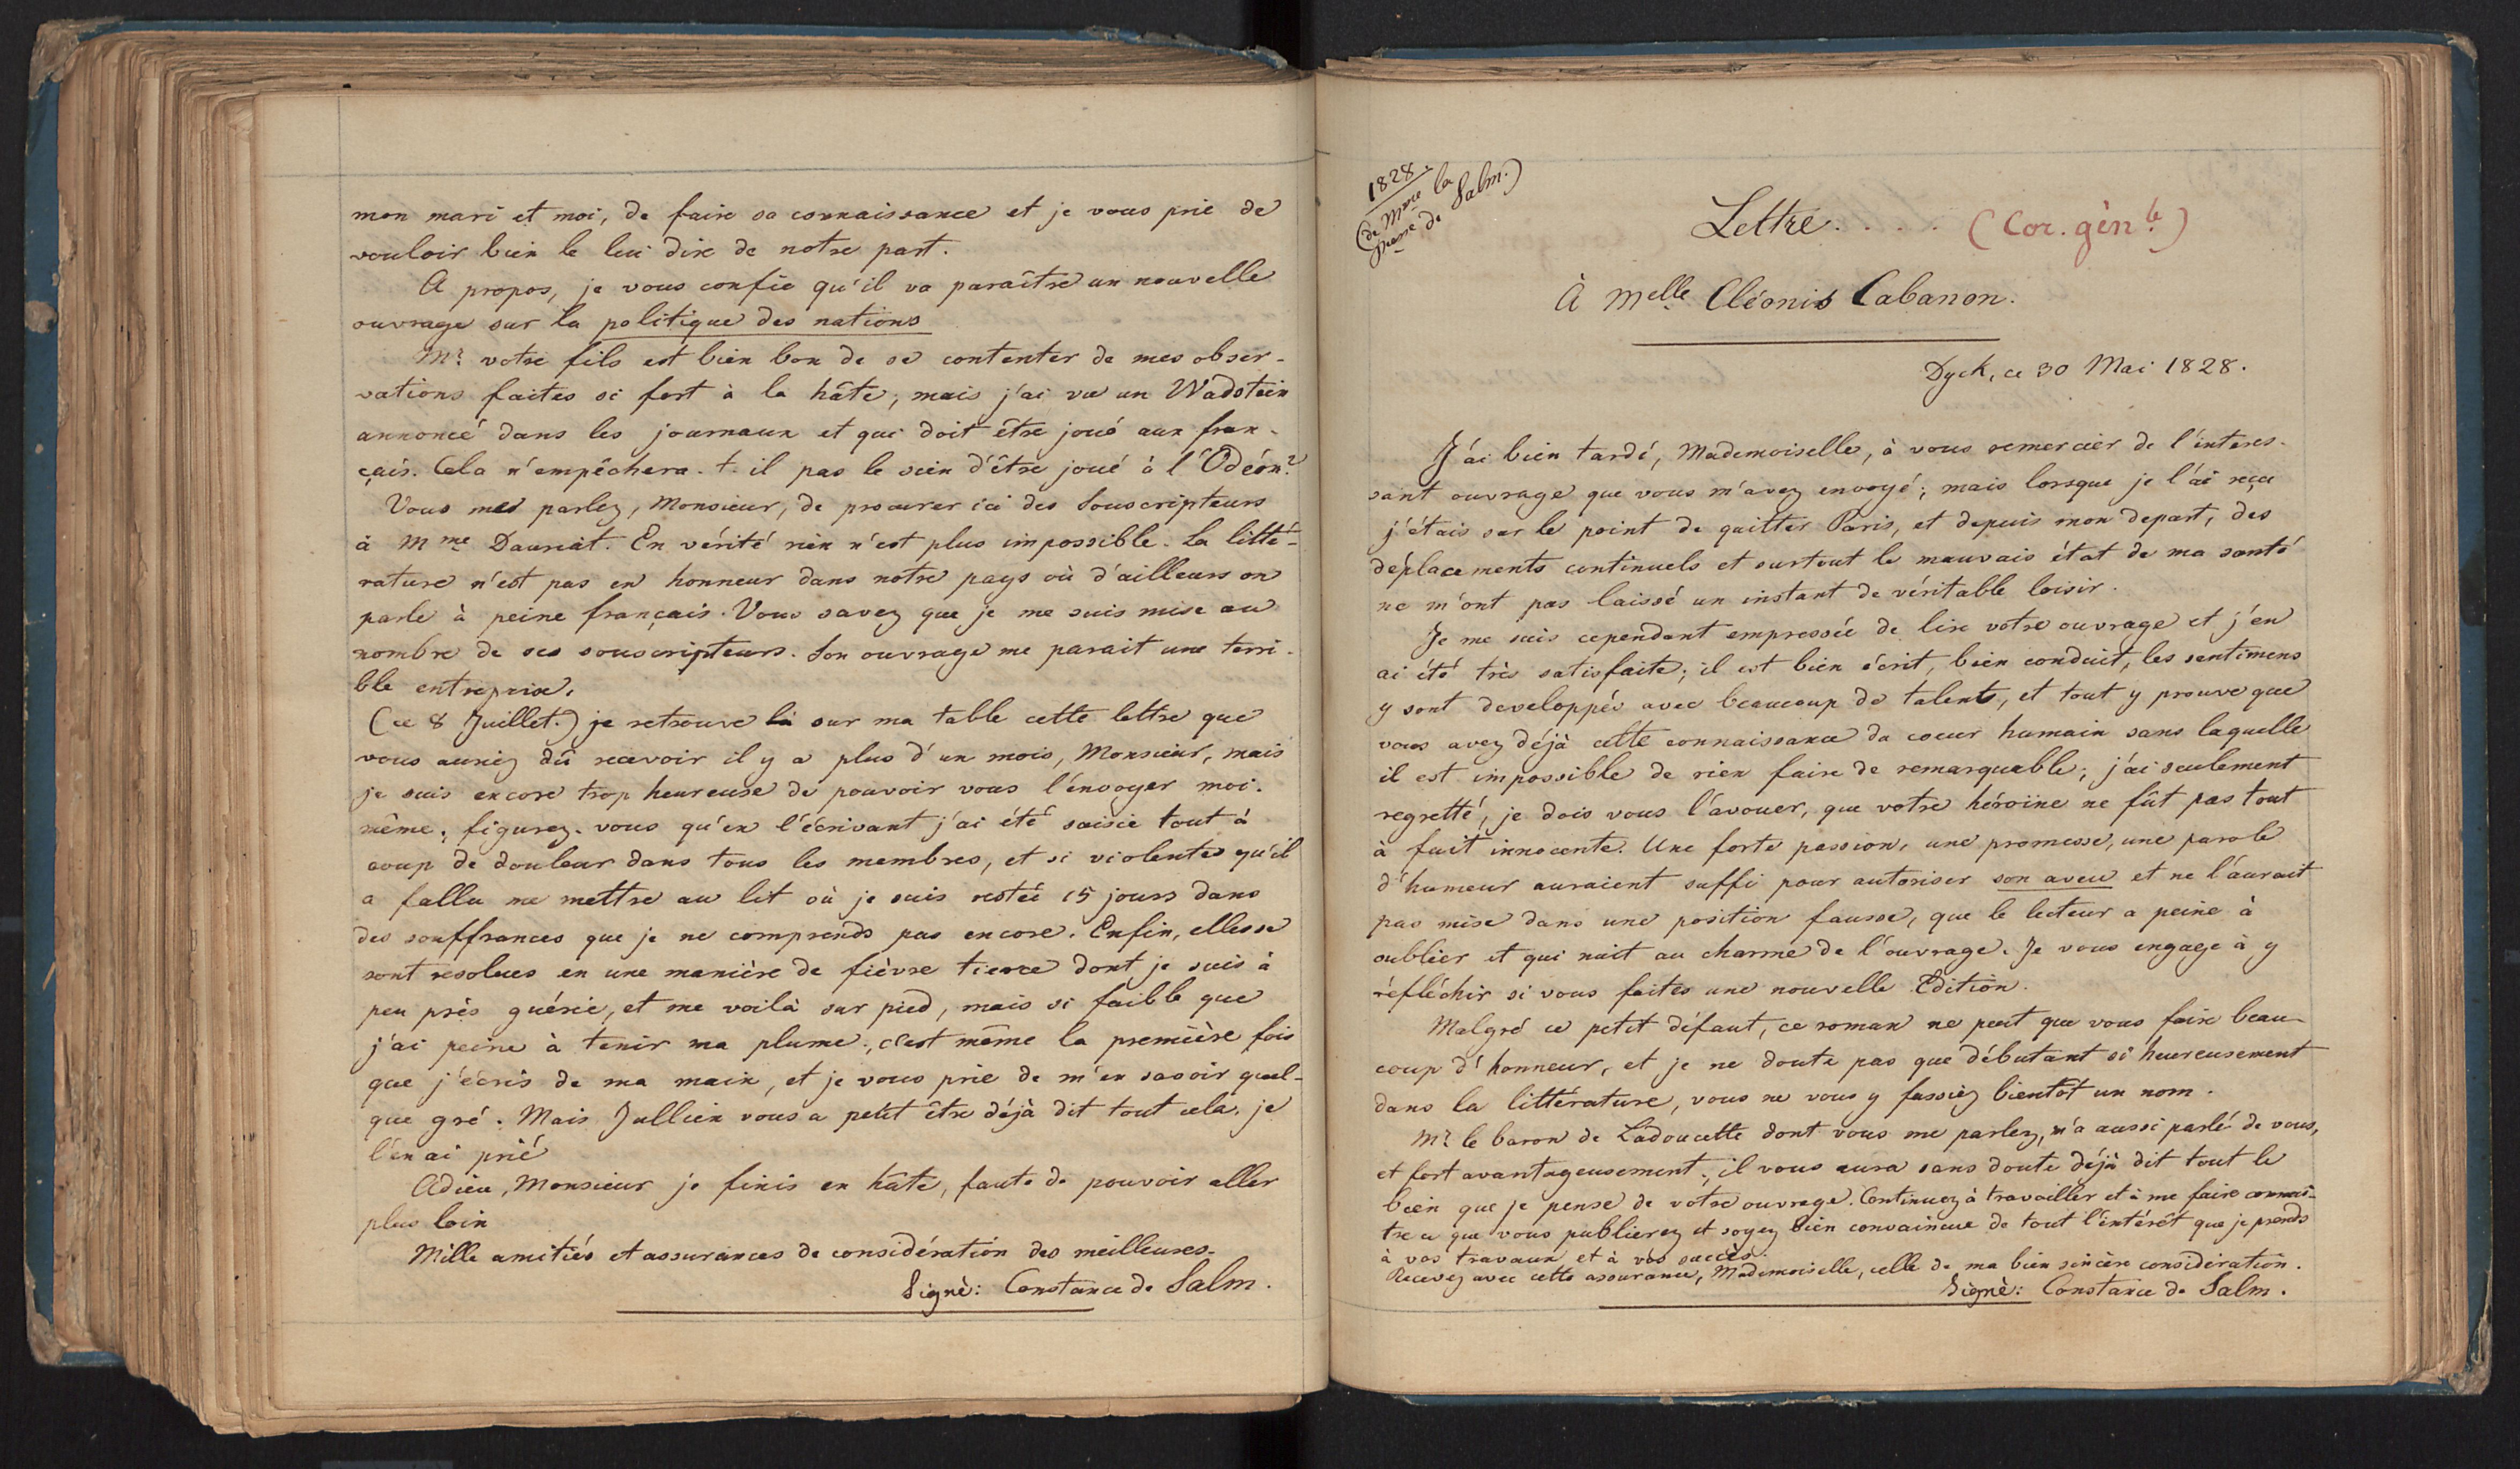 mon mari et moi, de faire sa connaissance et je vous prie de
vouloir bien le lui dire de notre part.
A propos, je vous confie qu'il va paraître un nouvelle
ouvrage sur la politique des nations
Mr. votre fils est bien bon de se contenter de mes obser-
vations faites si fort à la hâte; mais j'ai vu un Wadstein
annoncé dans les journaux et qui doit être joué aux fran-
çais. Cela n'empêchera-t-il pas le sien d'être joué à l'Odéon?
Vous mes parlez, Monsieur, de procurer ici des Souscripteurs
à Mme Dauriat. En vérité rien n'est plus impossible. La litté-
rature n'est pas en honneur dans notre pays où d'ailleurs on
parle à peine français. Vous savez que je me suis mise au
nombre de ses souscripteurs. Son ouvrage me parait une terri-
ble entreprise.
(ce 8 Juillet.) je retrouve là sur ma table cette lettre que
vous auriez dû recevoir il y a plus d'un mois, Monsieur, mais
je suis encore trop heureuse de pouvoir vous l'envoyer moi-
même; figurez-vous qu'en l'écrivant j'ai été saisie tout à
coup de douleur dans tous les membres, et si violentes qu'il
a fallu me mettre au lit où je suis restée 15 jours dans
des souffrances que je ne comprends pas encore. Enfin, elles se
sont resolues en une manière de fièvre tierce dont je suis à
peu près guérie, et me voilà sur pied, mais si faible que
j'ai peine à tenir ma plume; c'est même la première fois
que j'écris de ma main, et je vous prie de m'en savoir quel-
que gré. Mais Jullien vous a petit être déjà dit tout cela, je
l'en ai prié
Adieu, Monsieur je finis en hâte, faute de pouvoir aller
plus loin
Mille amitiés et assurances de considération des meilleures.
Signé: Constance de Salm.
1828.
(de Mme la
Psse de Salm.)
Lettre. . . . (Cor. gènle)
À Melle Cléonis Cabanon.
Dyck, ce 30 Mai 1828.
J'ai bien tardé, Mademoiselle, à vous remercier de l'interes-
sant ouvrage que vous m'avez envoyé; mais lorsque je l'ai reçu
j'étais sur le point de quitter Paris, et depuis mon depart, des
déplacements continuels et surtout le mauvais état de ma santé
ne m'ont pas laissé un instant de véritable loisir.
Je me suis cependant empressée de lire votre ouvrage et j'en
ai été très satisfaite; il est bien écrit, bien conduit, les sentimens
y sont developpés avec beaucoup de talents, et tout y prouve que
vous avez déjà cette connaissance du coeur humain sans laquelle
il est impossible de rien faire de remarquable; j'ai seulement
regretté, je dois vous l'avouer, que votre héroïne ne fût pas tout
à fait innocente. Une forte passion, une promesse, une parole
d'humeur auraient suffi pour autoriser son aveu et ne l'aurait
pas mise dans une position fausse, que le lecteur a peine à
oublier et qui nuit au charme de l'ouvrage. Je vous engage à y
réfléchir si vous faites une nouvelle Edition.
Malgré ce petit défaut, ce roman ne peut que vous faire beau-
coup d'honneur, et je ne doute pas que débutant si heureusement
dans la littérature, vous ne vous y fassiez bientôt un nom.
Mr. le baron de Ladoucette dont vous me parlez, m'a aussi parlé de vous,
et fort avantageusement; il vous aura sans doute déjà dit tout le
bien que je pense de votre ouvrage. Continuez à travailler et à me faire connaî-
tre ce que vous publierez et soyez bien convaincue de tout l'intérêt que je prends
à vos travaux et à vos succès.
Recevez avec cette assurance, Mademoiselle, celle de ma bien sincère considération.
Signè: Constance de Salm.